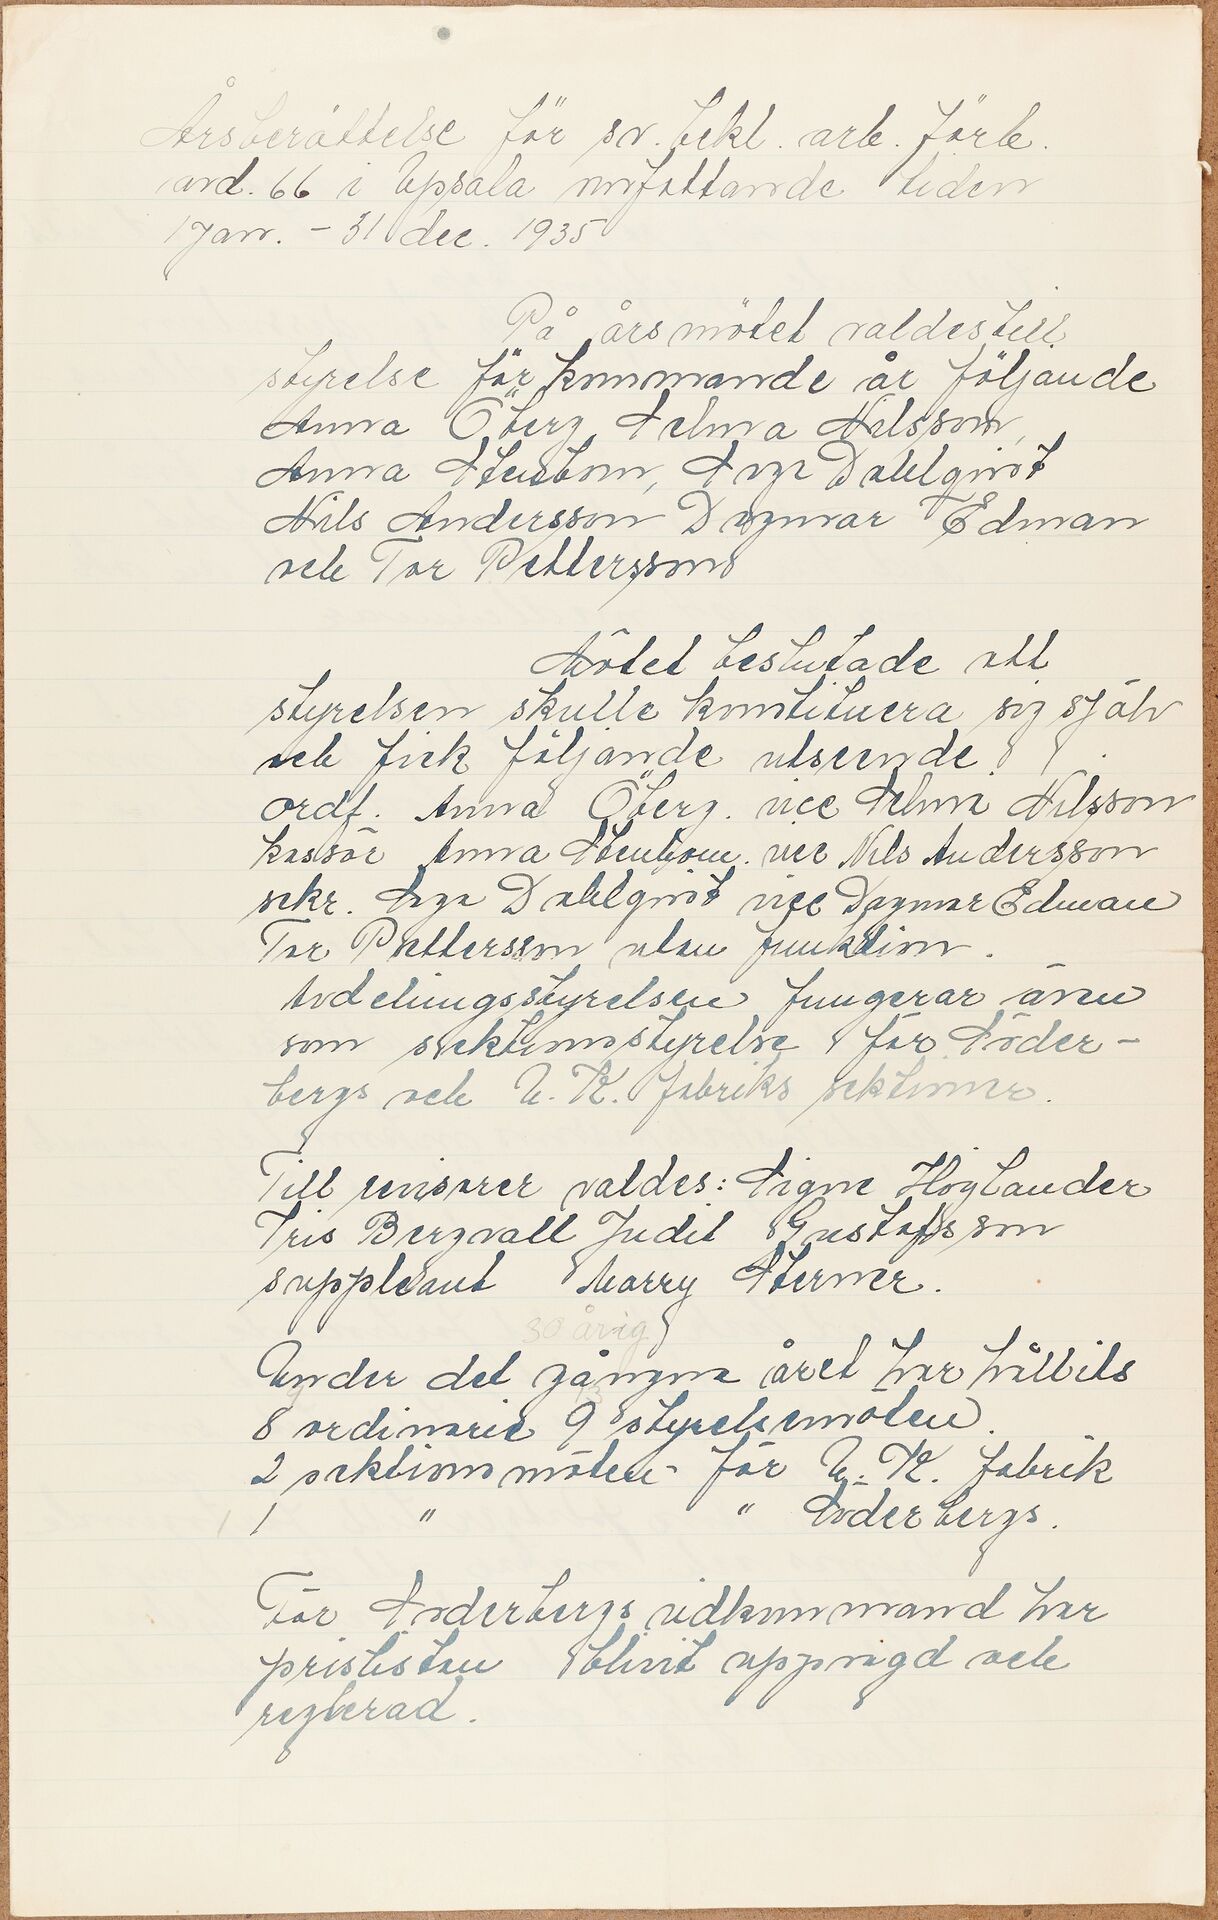 Årsberättelse för sv. bekl. arb. förb.
avd. 66 i Upsala omfattande tiden
1 jan. – 31 dec. 1935
På årsmötet valdes till
styrelse för kommande år följande
Anna Öberg, Selma Nilsson,
Anna Stenbom, Inga Dahlqvist
Nils Andersson Dagmar Edman
och Tor Pettersson
Mötet beslutade att
styrelsen skulle konstituera sig själv
och fick följande utseende.
ordf. Anna Öberg. vice Selma Nilsson
kassör Anna Stenbom. vice Nils Andersson
sekr. Inga Dahlqvist vice Dagmar Edman
Tor Pettersson utan funktion.
Avdelningsstyrelsen fungerar även
som sektionsstyrelse för Söder-
bergs och U. K. fabriks sektioner.
Till revisorer valdes: Signe Höglander
Iris Bergvall Judit Gustafsson
suppleant Harry Sterner.
30 årig
Under det gångna året har hållits
8 ordinarie 9 styrelsemöten.
2 sektionsmöten för U. K. fabrik
1 " " Söderbergs.
För Söderbergs vidkommand har
prislistan blivit uppsagd och
reglerad.